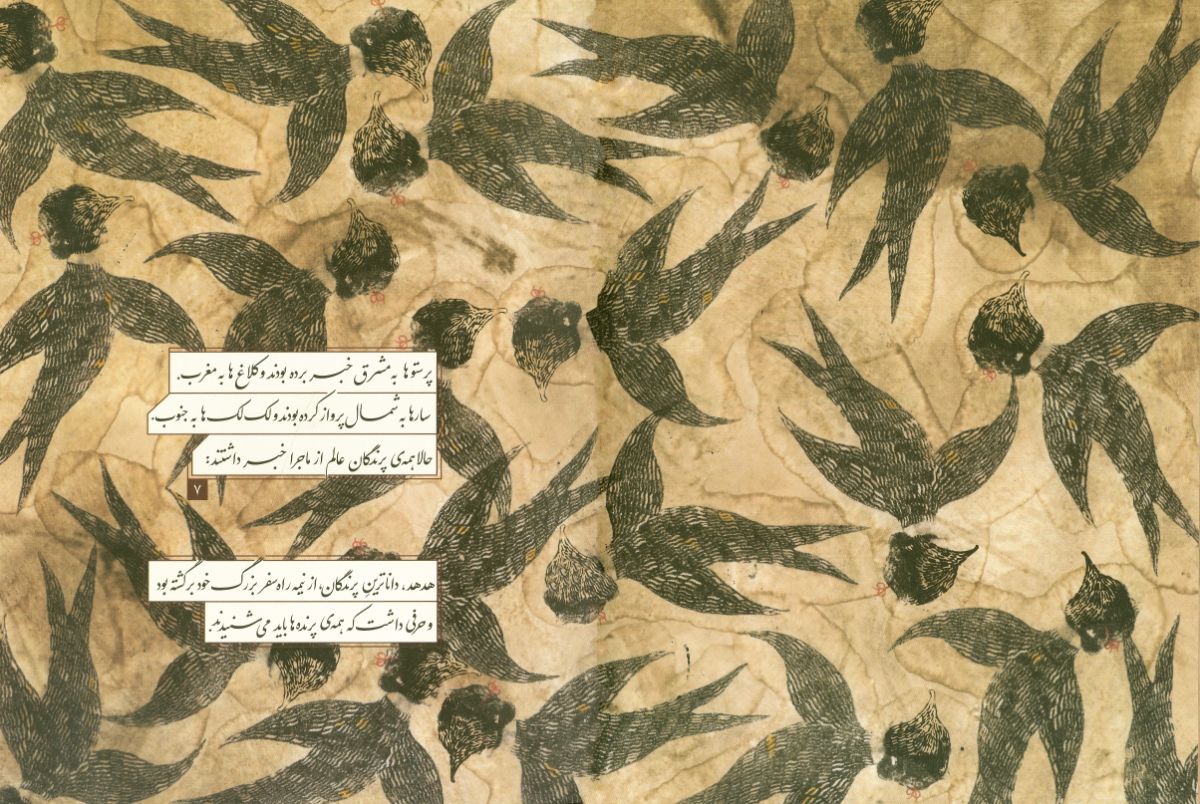 پرستوها به مشرق خبر برده بودند و کلاغ‌ها به مغرب.
سارها به شمال پرواز کرده بودند و لک لک‌ها به جنوب.
حالا همه‌ی پرندگان عالم از ماجرا خبر داشتند:
۷
هدهد، داناترینِ پرندگان، از نیمه راه سفر بزرگ خود برگشته بود
و حرفی داشت که همه‌ی پرنده‌ها باید می‌شنیدند.